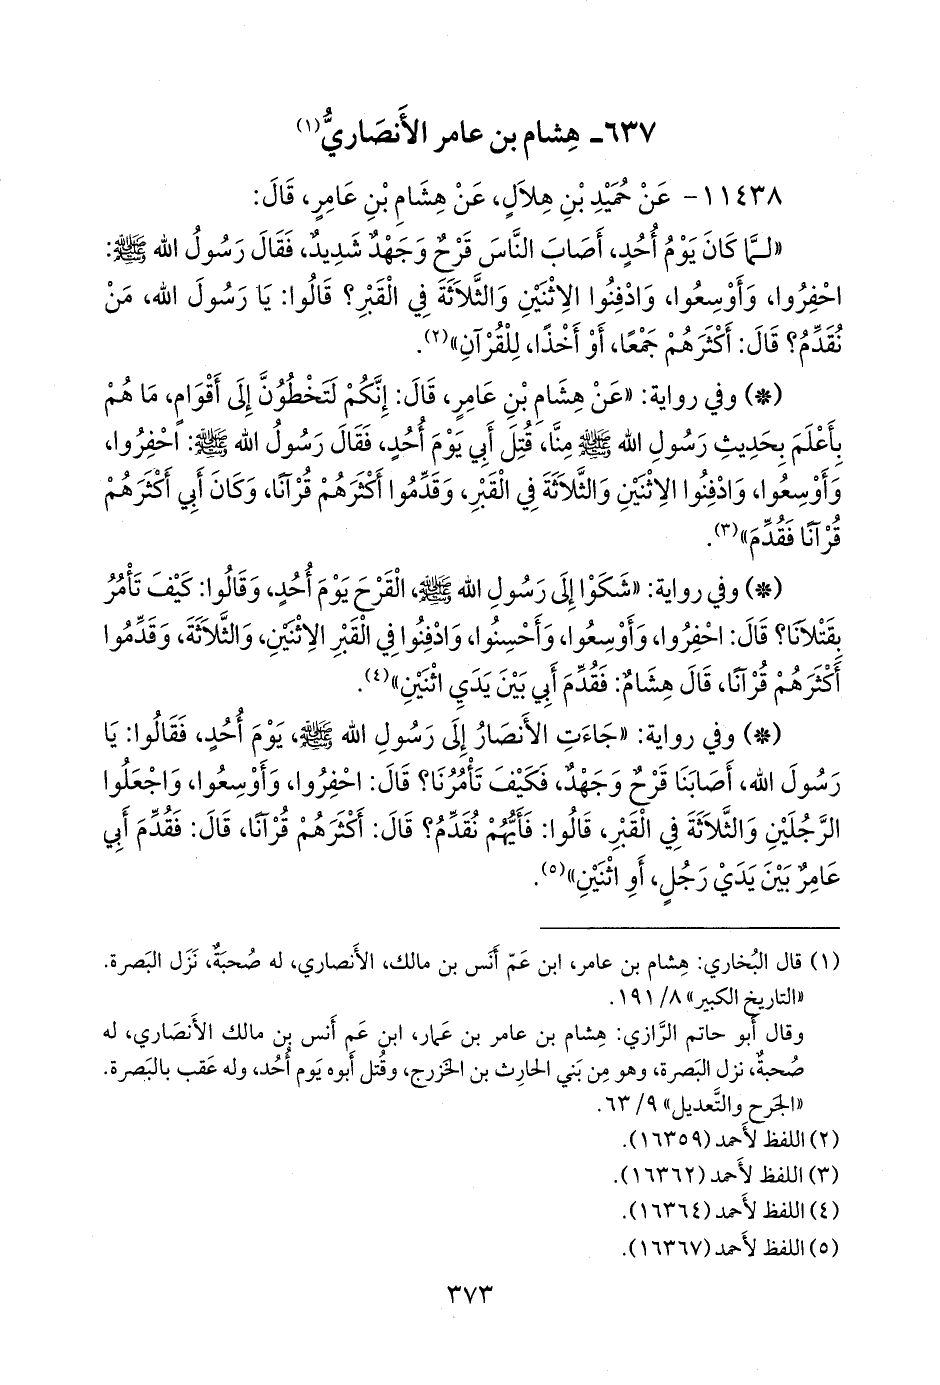 ٦٣٧ـ هِشام بن عامر الأَنصَاريُّ(١)
١١٤٣٨ - عَنْ حُمَيْدِ بْنِ هِلاَلٍ، عَنْ هِشَامِ بْنِ عَامِرٍ، قَالَ:
«لـمَّا كَانَ يَوْمُ أُحُدٍ، أَصَابَ النَّاسَ قَرْحٌ وَجَهْدٌ شَدِيدٌ، فَقَالَ رَسُولُ الله ﷺ:
احْفِرُوا، وَأَوْسِعُوا، وَادْفِنُوا الِاثْنَيْنِ وَالثَّلاَثَةَ فِي الْقَبْرِ؟ قَالُوا: يَا رَسُولَ الله، مَنْ
نُقَدِّمُ؟ قَالَ: أَكْثَرَهُمْ جَمْعًا، أَوْ أَخْذًا، لِلْقُرْآنِ»(٢).
(*) وفي رواية: «عَنْ هِشَامِ بْنِ عَامِرٍ، قَالَ: إِنَّكُمْ لَتَخْطُوُنَّ إِلَى أَقْوَامٍ، مَا هُمْ
بِأَعْلَمَ بِحَدِيثِ رَسُولِ الله ﷺ مِنَّا، قُتِلَ أَبِي يَوْمَ أُحُدٍ، فَقَالَ رَسُولُ الله ﷺ: احْفِرُوا،
وَأَوْسِعُوا، وَادْفِنُوا الِاثْنَيْنِ وَالثَّلاَثَةَ فِي الْقَبْرِ، وَقَدِّمُوا أَكْثَرَهُمْ قُرْآنًا، وَكَانَ أَبِي أَكْثَرَهُمْ
قُرْآنًا فَقُدِّمَ»(٣).
(*) وفي رواية: «شَكَوْا إِلَى رَسُولِ الله ﷺ، الْقَرْحَ يَوْمَ أُحُدٍ، وَقَالُوا: كَيْفَ تَأْمُرُ
بِقَتْلاَنَا؟ قَالَ: احْفِرُوا، وَأَوْسِعُوا، وَأَحْسِنُوا، وَادْفِنُوا فِي الْقَبْرِ الِاثْنَيْنِ، وَالثَّلاَثَةَ، وَقَدِّمُوا
أَكْثَرَهُمْ قُرْآنًا، قَالَ هِشَامٌ: فَقُدِّمَ أَبِي بَيْنَ يَدَيِ اثْنَيْنِ»(٤).
(*) وفي رواية: «جَاءَتِ الأَنْصَارُ إِلَى رَسُولِ الله ﷺ، يَوْمَ أُحُدٍ، فَقَالُوا: يَا
رَسُولَ الله، أَصَابَنَا قَرْحٌ وَجَهْدٌ، فَكَيْفَ تَأْمُرُنَا؟ قَالَ: احْفِرُوا، وَأَوْسِعُوا، وَاجْعَلُوا
الرَّجُلَيْنِ وَالثَّلاَثَةَ فِي الْقَبْرِ، قَالُوا: فَأَيُّهُمْ نُقَدِّمُ؟ قَالَ: أَكْثَرَهُمْ قُرْآنًا، قَالَ: فَقُدِّمَ أَبِي
عَامِرٌ بَيْنَ يَدَيْ رَجُلٍ، أَوِ اثْنَيْنِ»(٥).
(١) قال البُخاري: هِشام بن عامر، ابن عَمّ أَنَس بن مالك، الأَنصاري، له صُحبَةٌ، نَزَل البَصرة.
«التاريخ الكبير» ٨/ ١٩١.
وقال أَبو حاتم الرَّازي: هِشام بن عامر بن عَمار، ابن عَم أَنس بن مالك الأَنصَاري، له
صُحبةٌ، نزل البَصرة، وهو مِن بَني الحارِث بن الخَزرج، وقُتل أَبوه يَوم أُحُد، وله عَقب بالبَصرة.
«الجَرح والتَّعديل» ٩/ ٦٣.
(٢) اللفظ لأَحمد (١٦٣٥٩).
(٣) اللفظ لأَحمد (١٦٣٦٢).
(٤) اللفظ لأَحمد (١٦٣٦٤).
(٥) اللفظ لأَحمد (١٦٣٦٧).
٣٧٣